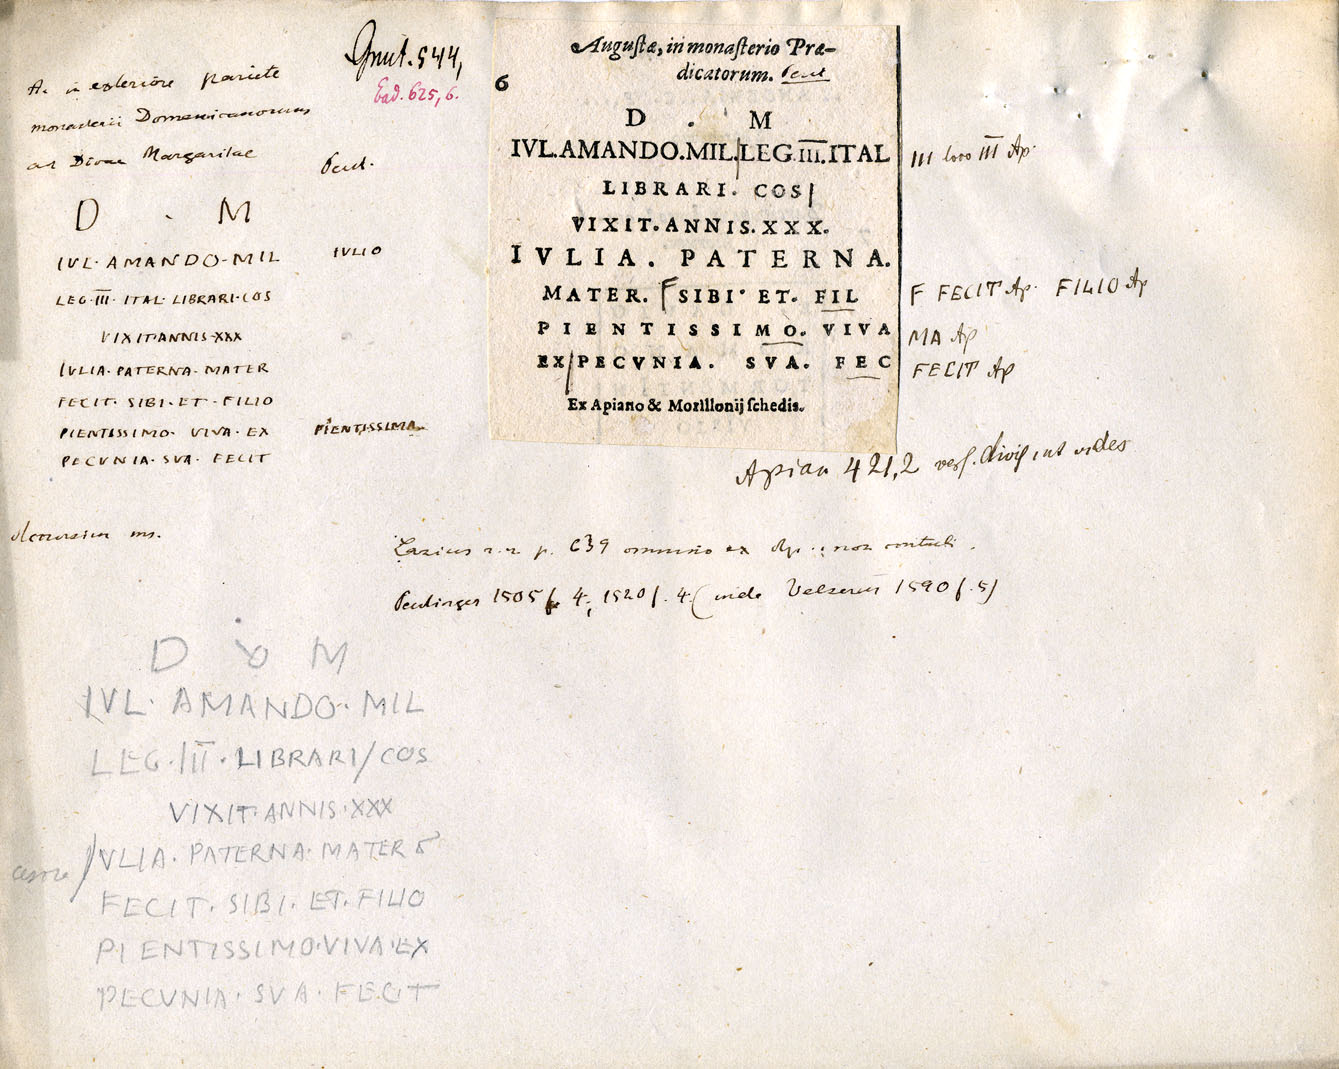 Grut. 544,
Ead. 625, 6.
A. in exteriore pariete
monasterii Domenicanorum
ad Divae Margaritae
Peut.
D · M
IVL · AMANDO · MIL
IVLIO
LEG · III · ITAL · LIBRARI · COS
VIXIT · ANNIS · XXX
IVLIA · PATERNA · MATER
FECIT · SIBI · ET · FILIO
PIENTISSIMO · VIVA · EX
PIENTISSIMA
PECVNIA · SVA · FECIT
ms.
6
Augustæ, in monasterio Præ-
dicatorum. Peut
D . M
IVL.AMANDO.MIL.|LEG.III.ITAL
LIBRARI. COS|
VIXIT.ANNIS.XXX.
IVLIA. PATERNA.
MATER. F SIBI· ET. FIL
PIENTISSIMO. VIVA
EX|PECVNIA. SVA. FEC
Ex Apiano & Morillonij schedis.
III loco III Ap.
F FECIT Ap. FILIO Ap
MA Ap
FECIT Ap
Apian 421,2 vers. divis. ut vides
Lazius p. 639 omnino ex Ap.; non contuli.
Peutinger 1505 f. 4; 1520 f. 4 (inde Velserus 1590 f. 5)
D M
IVL · AMANDO · MIL
LEG · III · LIBRARI/COS
VIXIT · ANNIS · XXX
IVLIA · PATERNA · MATER
FECIT · SIBI · ET · FILIO
PIENTISSIMO · VIVA · EX
PECVNIA · SVA · FECIT